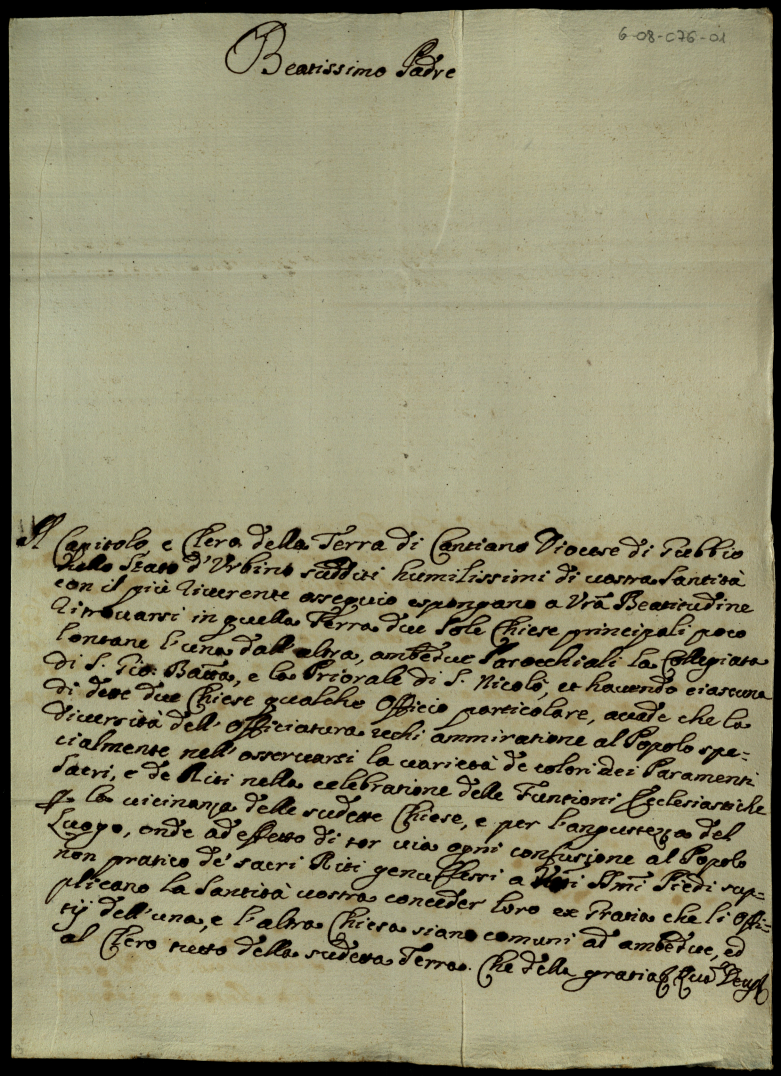 6-08-076-01
Beatissimo Padre
Il Capitolo e Clero della Terra di Cantiano Diocese di Gubbio
Nello Stato d'Urbino sudditi humilissimi di vostra Santità
con il più riverente ossequio espongano a Vrã Beatitudine
ritrovarsi in quella Terra due sole Chiese principali poco
lontane l'una dall'altra, ambedue Parocchiali la Collegiata
di S. Gio: Batta, e la Priorale di S. Nicolò, et havendo ciascuna
di dette due Chiese qualche officio particolare, accade che la
diversità dell'officiatura rechi ammiratione al Popolo spe-
cialmente nell'osservarsi la varietà de colori dei Paramenti
Sacri, e de Riti nella celebratione delle Funtioni Ecclesiastiche
p la vicinanza delle sudette Chiese, e per l'angustezza del
Luogo, onde ad effetto di tor via ogni confusione al Popolo
non pratico de' sacri Riti genuflessi a Vrĩ SSmĩ Piedi sup-
plicano la Santità vostra conceder loro ex Gratia che li offi-
tij dell'una, e l'altra Chiesa siano comuni ad ambedue, ed
al Clero tutto della sudetta Terra. Che della gratia